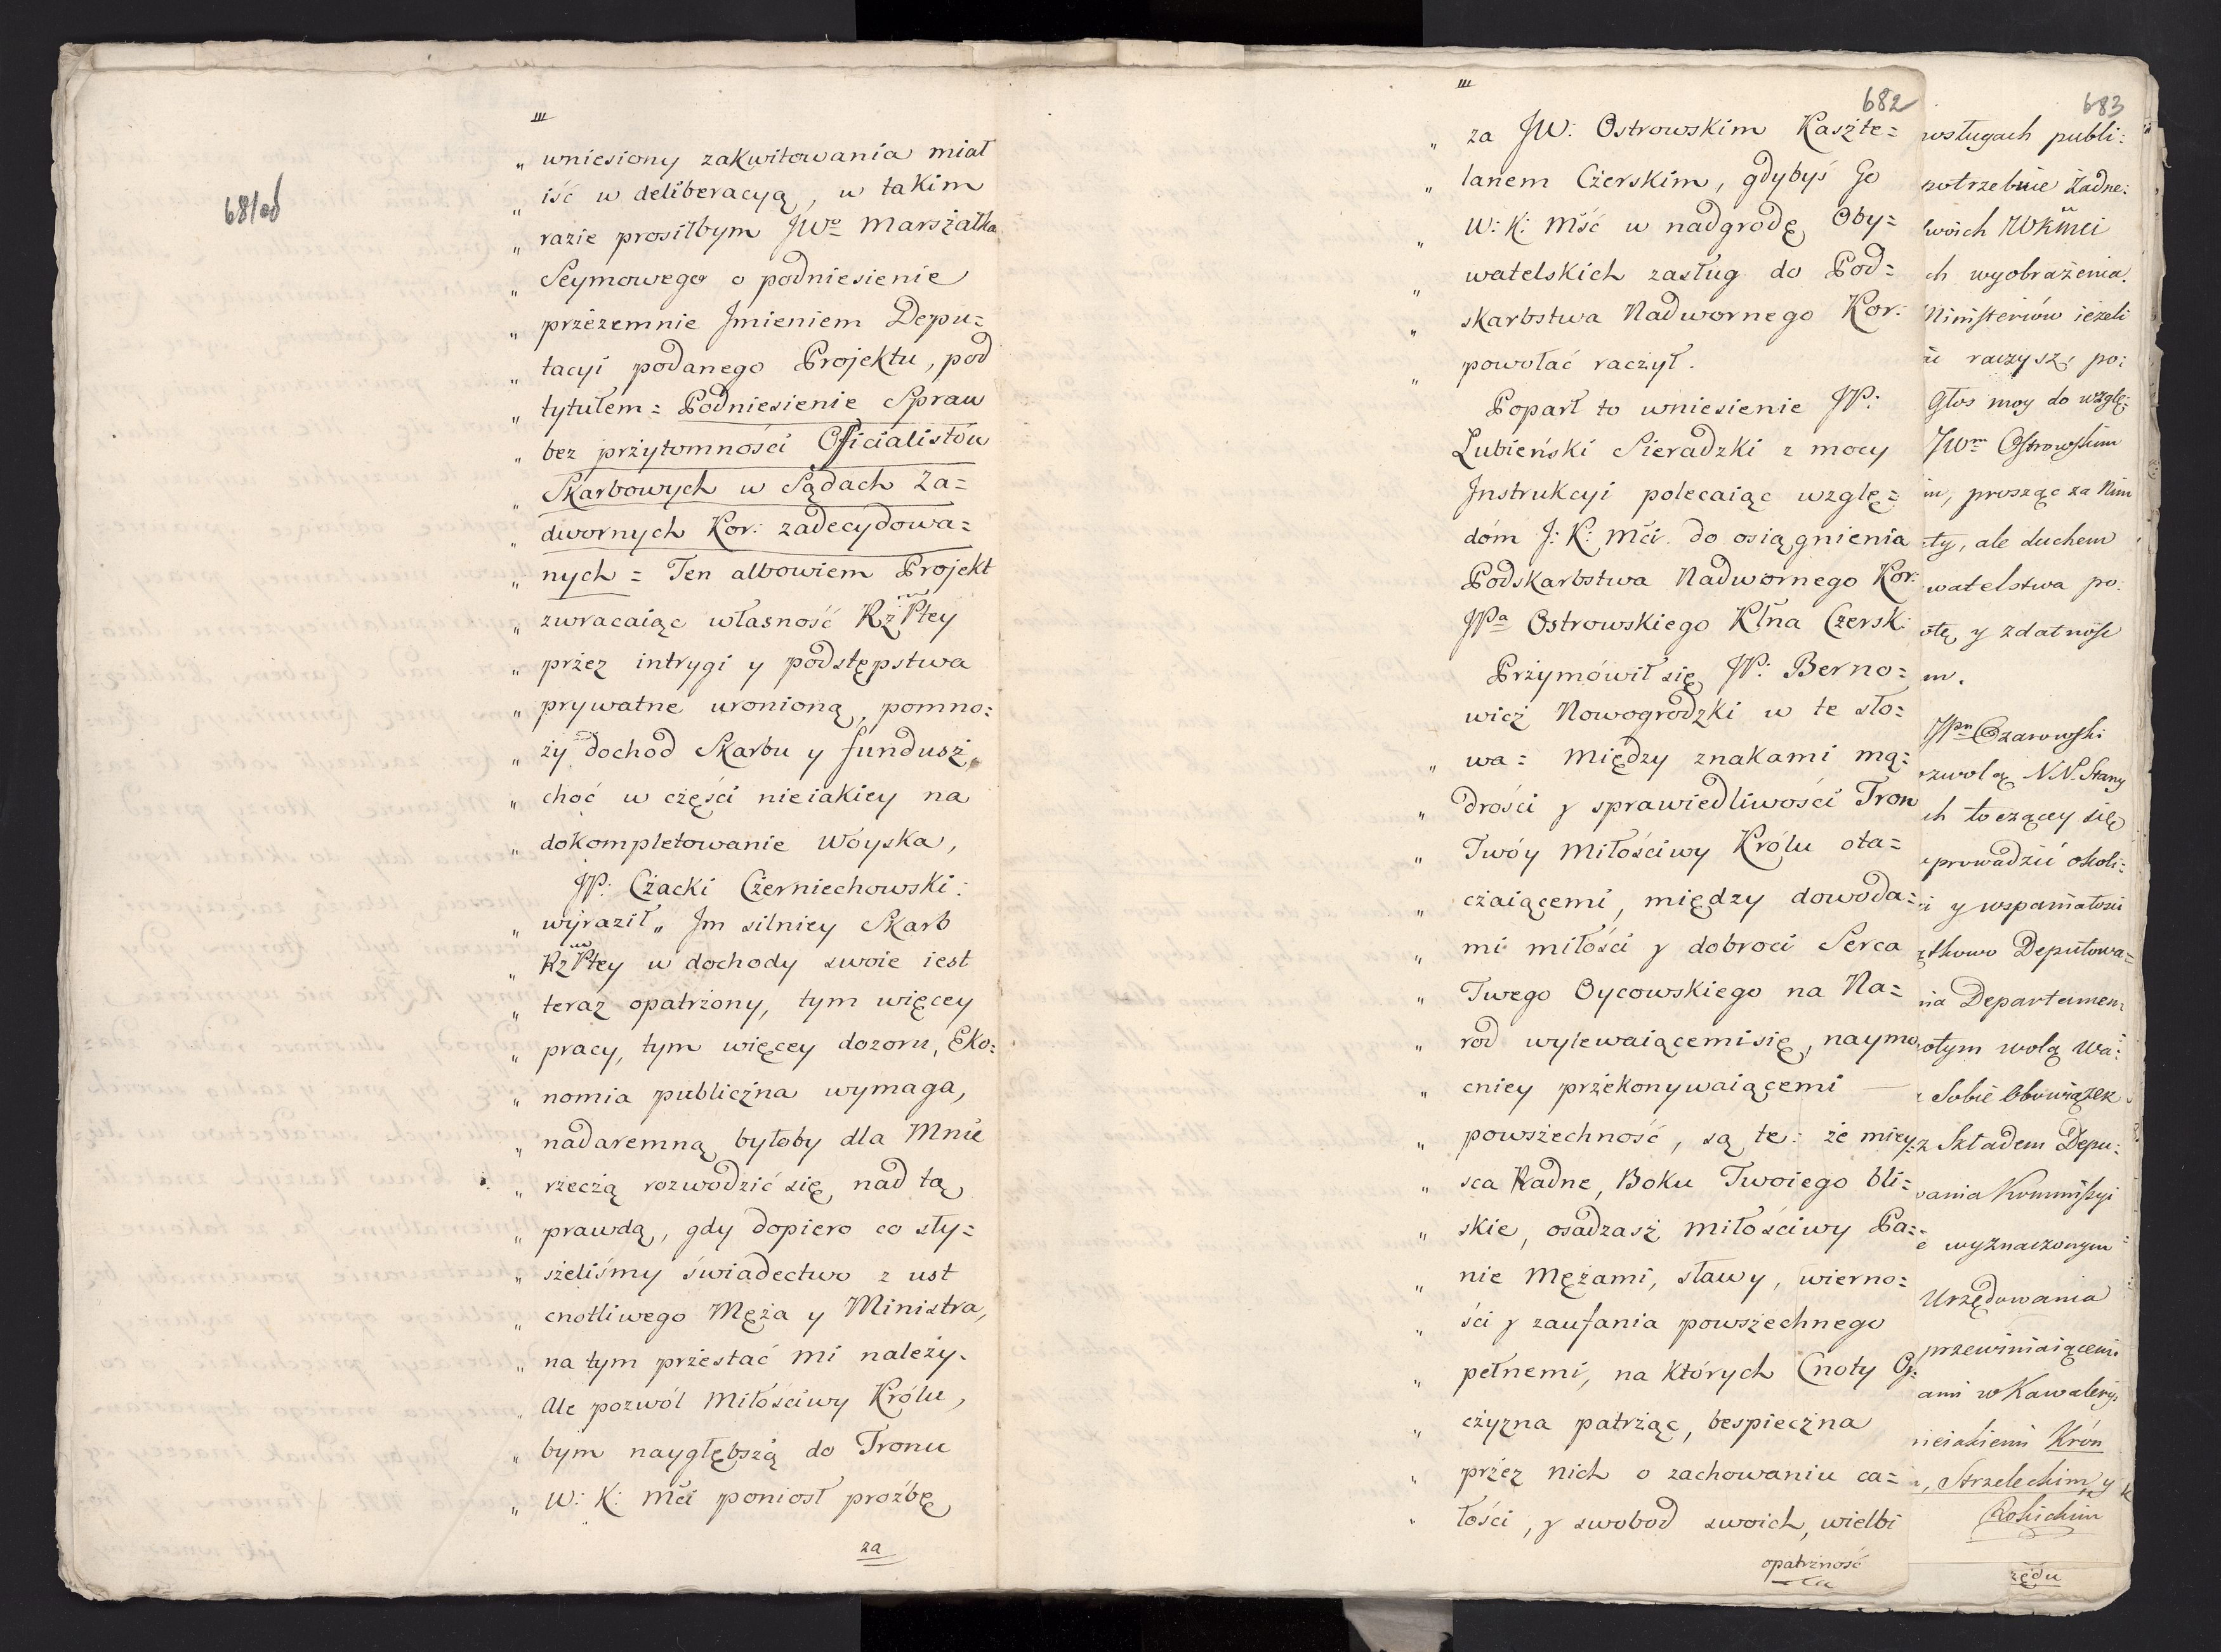 681od
„ wniesiony zakwitowania miał
„ iść w deliberacyą, w takim
„ razie prosiłbym JWo Marszałka
„ Seymowego o podniesienie
„ przezemnie Jmieniem Depu=
„ tacyi podanego Projektu, pod
„ tytułem = Podniesienie Spraw
„ bez przytomności Officialistów
„ Skarbowych w Sądach Za=
„ dwornych Kor: zadecydowa=
„ nych = Ten albowiem Projekt
„ zwracaiąc własność RżPtey
„ przez intrygi y podstępstwa
„ prywatne uronioną, pomno=
„ ży dochod Skarbu y fundusz
„ choć w części nieiakiey na
„ dokompletowanie Woyska,
JP: Czacki Czerniechowski:
„ wyraził „ Jm silniey Skarb
„ RżPtey w dochody swoie iest
„ teraz opatrzony, tym więcey
„ pracy, tym więcey dozoru, Eko=
„ nomia publiczna wymaga,
„ nadaremną byłoby dla Mnie
„ rzeczą rozwodzić się nad tą
„ prawdą, gdy dopiero co sły=
„ szeliśmy świadectwo z ust
„ cnotliwego Męża y Ministra,
„ na tym przestać mi należy.
„ Ale pozwól Miłościwy Królu,
„ bym naygłębszą do Tronu
„ W: K: Mći poniosł prożbę
za
682
„ za JW: Ostrowskim Kaszte=
„ lanem Czerskim, gdybyś Go
„ W: K: Mść w nadgrodę Oby=
„ watelskich zasług do Pod=
„ skarbstwa Nadwornego Kor:
„ powołać raczył.
Poparł to wniesienie JP:
Łubieński Sieradzki z mocy
Jnstrukcyi polecaiąc wzglę=
dóm J: K: Mći do osiągnienia
Podskarbstwa Nadwornego Kor:
JPa Ostrowskiego Kłna Czersk:
Przymówił się JP: Berno=
wicz Nowogrodzki w te sło=
„ wa = Między znakami mą=
„ drości y sprawiedliwości Tron
„ Twóy Miłościwy Królu ota=
„ czaiącemi, między dowoda=
„ mi miłości y dobroci Serca
„ Twego Oycowskiego na Na=
„ rod wylewaiącemisię, naymo
„ cniey przekonywaiącemi —
„ powszechność, są te: że miey=
„ sca Radne, Boku Twoiego bli=
„ skie, osadzasz Miłościwy Pa=
„ nie Mężami, sławy, wierno=
„ ści y zaufania powszechnego
„ pełnemi, na których Cnoty Oy=
„ czyzna patrząc, bespieczna
„ przez nich o zachowaniu ca=
„ łości, y swobod swoich, wielbi
opatrzność
683
wsługach publi:
potrzebnie żadne:
swoich WKMci
ch wyobrażenia.
Ministeriów ieżeli
raczysz, po:
Głos moy do wzglę:
JWm Ostrowskim
prosząc za Nim
ty, ale duchem
watelstwa po:
otę y zdatność
m.
JPn Ożarowski
ozwolą N.N. Stany
ch toczącey się
prowadzić okoli:
i y wspaniałości
Deputowa=
nia Departamen:
otym wolą wa:
Sobie Obowiązek
z Składem Depu:
wania Kommissyi
e wyznaczonym
Urzędowania
przewiniaiącemi
ami w Kawalery
nieiakiemi Kron
Strzeleckim y
Rokickim
zędu